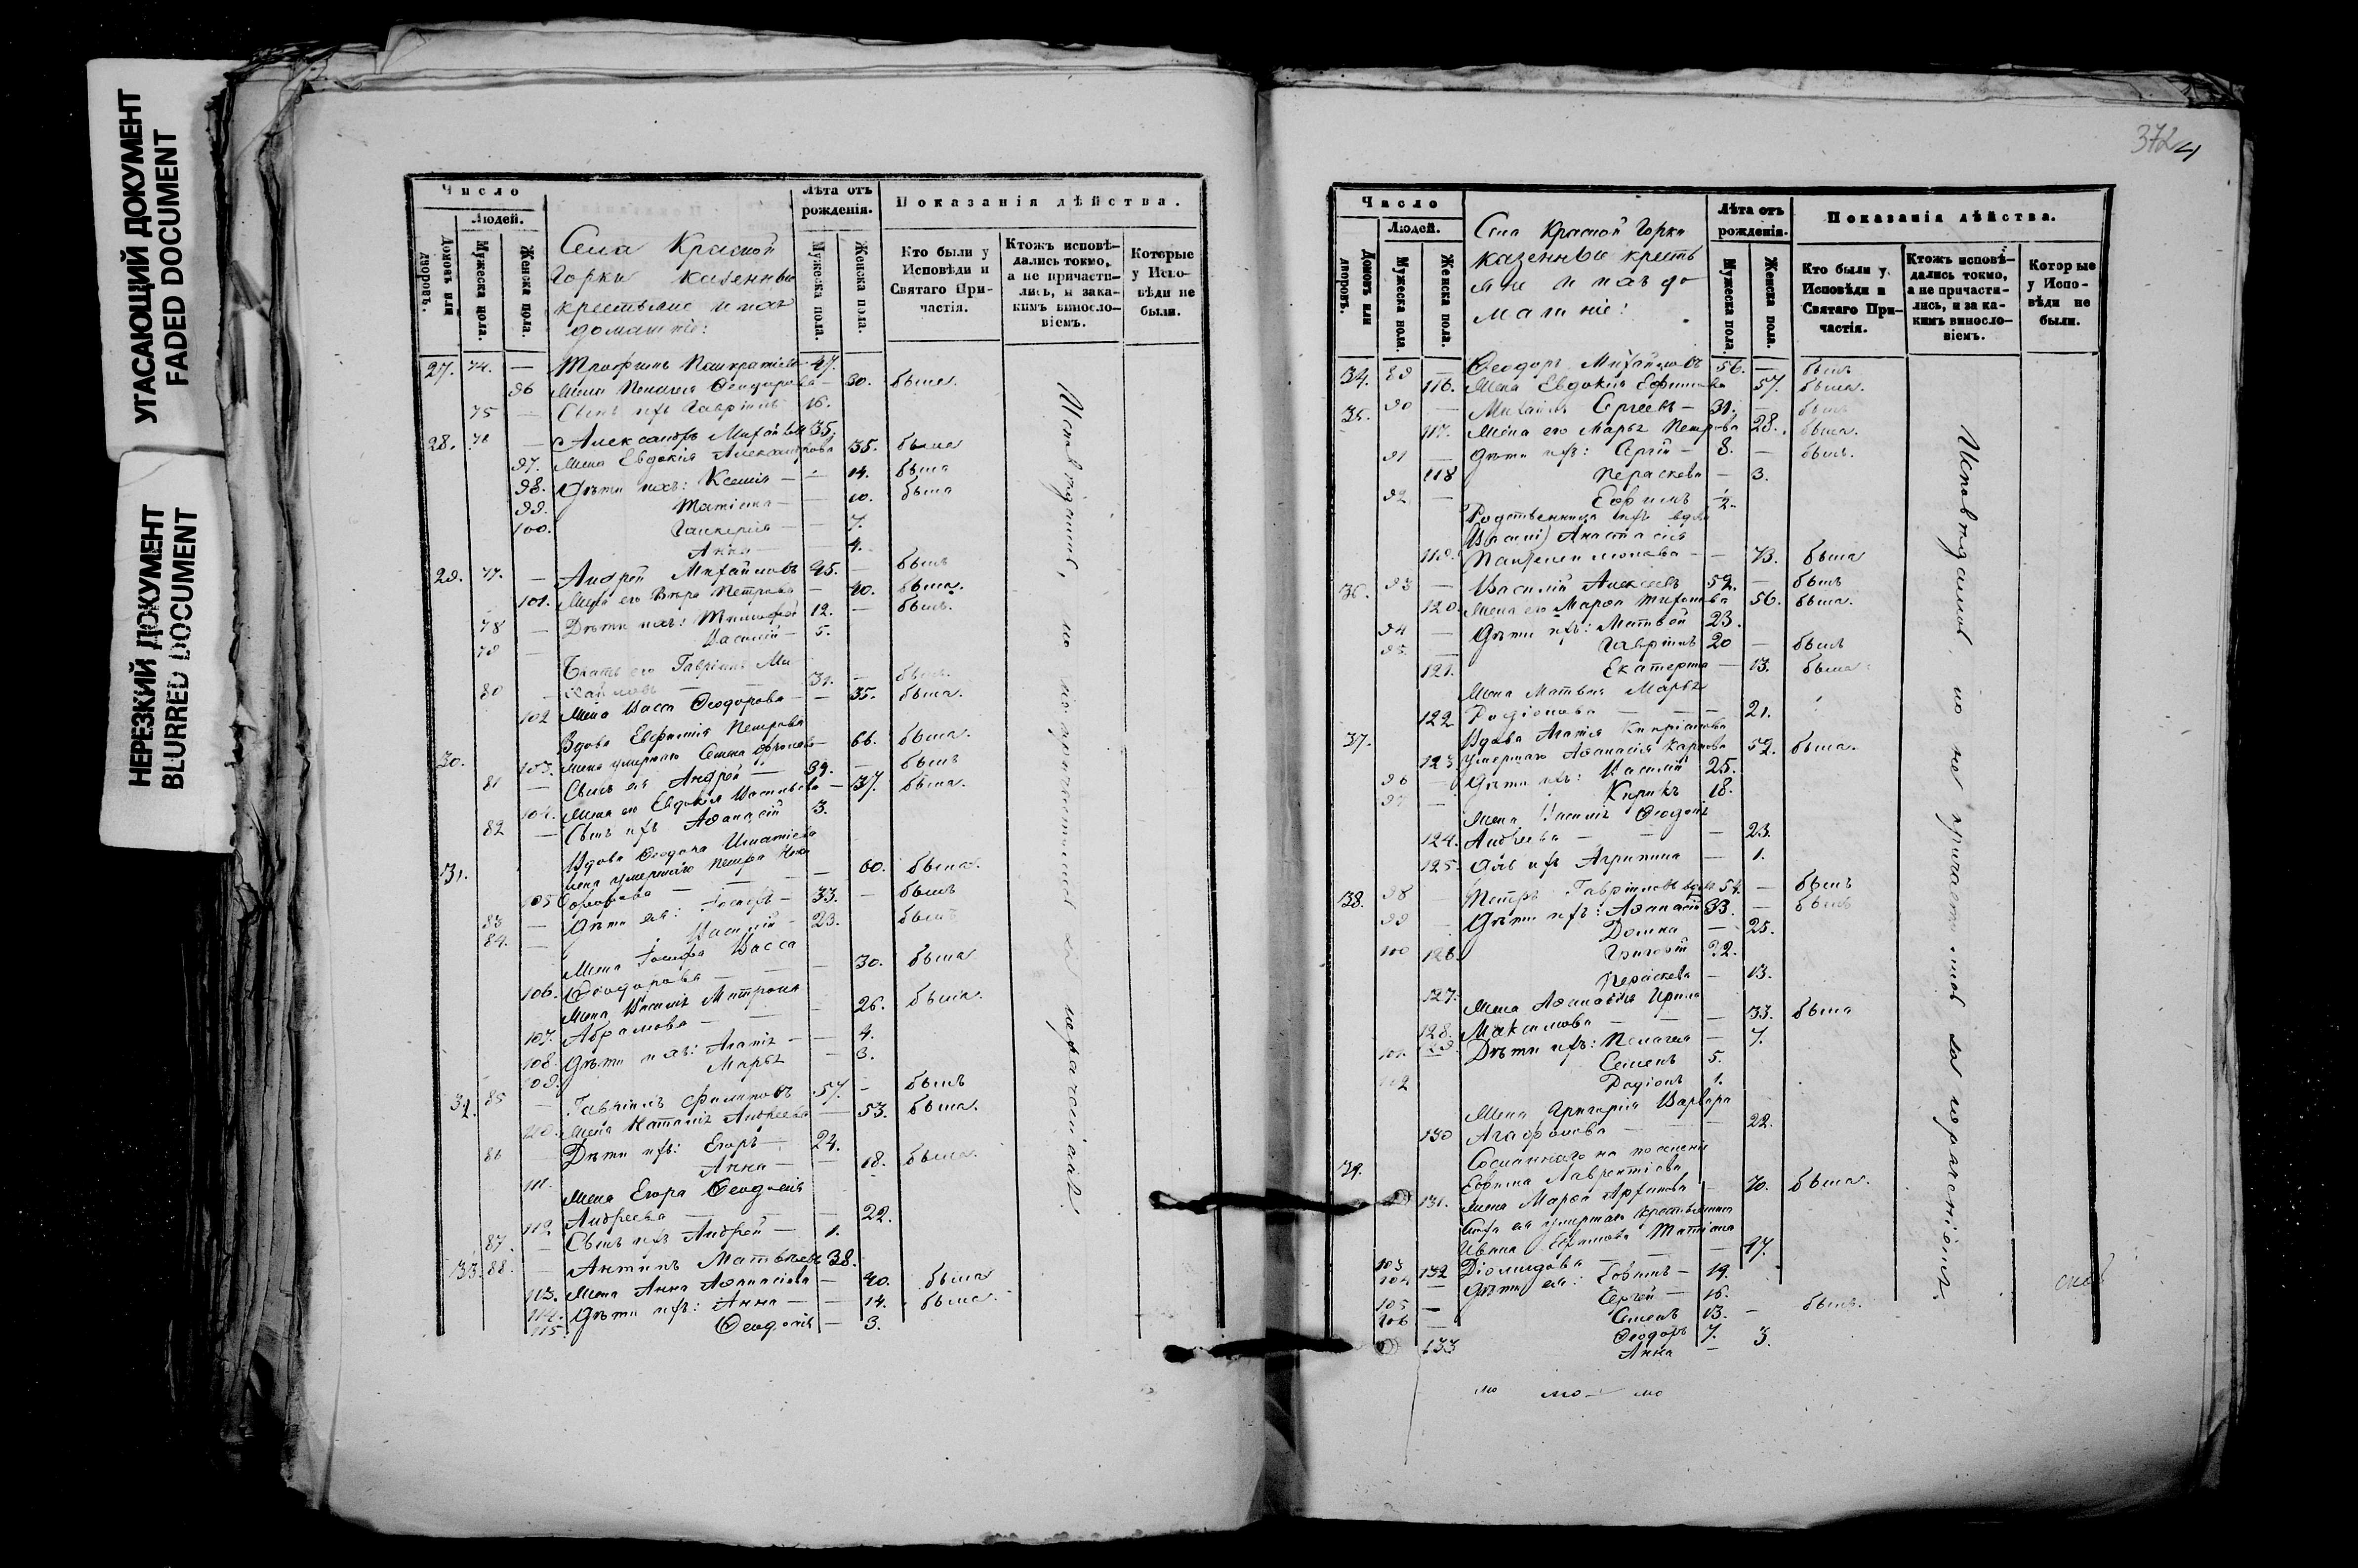 УГАСАЮЩИЙ ДОКУМЕНТ
FADED DOCUMENT
НЕРЕЗКИЙ ДОКУМЕНТ
BLURRED DOCUMENT
Число
Людей.
Домовъ или дворовъ.
Мужеска пола.
Женска пола.
Села Красной
Горки казенные
крестьяне и ихъ
домашніе:
Лѣта отъ рожденія.
Мужеска пола.
Женска пола.
Показанія дѣйства.
Кто были у Исповѣди и Святаго Причастія.
Ктожъ исповѣдались токмо, а не причастились, и закакимъ винословіемъ.
Которые у Исповѣди не были.
27. 74. — Трофимъ Панкратіевъ 47.
96 Жена Пелагия Феодорова — 50. была.
75 — Сынъ ихъ Гавріилъ 16.
28. 76 — Александръ Михайловъ 35.
97. Жена Евдокія Александрова 35. была
98. Дѣти ихъ: Ксенія — — 14. была
99. Татіана — 10. была
100. Гликерія — — 7.
Анна — 4.
29. 77. — Андрей Михайловъ 45. — былъ
101. Жена его Вѣра Петрова — 40. была.
78 — Дѣти ихъ: Тимофей 12. — былъ.
79 — Василій — 5.
Братъ его Гавріилъ Ми-
80 — хайловъ — 31. — былъ.
102 Жена Васса Феодорова — — 35. была.
Вдова Евфимія Петрова
30. 103. жена умершаго 66. была.
81 — Сынъ ея Андрей — 39. — былъ
104. Жена его Евдокія Васильева — 37. была.
82 — Сынъ ихъ Афанасій 3.
Вдова Феодора Игнатіева
жена умершаго Петра
31. 105 — 60. была.
83 — Дѣти ея: Іосифъ — 33. — былъ
84. — Василій — 23. былъ
Жена Іосифа Васса
106. Феодорова — — 30. была
Жена Василія Матрона
107. Абрамова — — 26. была.
108. Дѣти ихъ: Агапія — — 4.
109. Марья — 3.
32. 85 — Гавріилъ Филиповъ 57. — былъ
110. Жена Наталія Андреева — 53. была.
86 — Дѣти ихъ: Егоръ — 24.
111. Анна — — 18. была.
Жена Егора Феодосія
112 Андреева — — 22.
87. — Сынъ ихъ Андрей — 1.
33. 88. — Антипъ Матвѣевъ 38.
113. Жена Анна Афанасіева — 40. была
114. Дѣти ихъ: Анна — — 14. была.
115. Феодосія — 3.
Исповѣдались, но не причастились за нерачениемъ.
372
Число
Людей.
Домовъ или дворовъ.
Мужеска пола.
Женска пола.
Села Красной Горки
казенные кресть
яне и ихъ до
машніе:
Лѣта отъ рожденія.
Мужеска пола.
Женска пола.
Показанія дѣйства.
Кто были у Исповѣди и Святаго Причастія.
Ктожъ исповѣдались токмо, а не причастились, и за какимъ винословіемъ.
Которые у Исповѣди не были.
34. 89 — Феодоръ Михайловъ 56. — былъ
116. Жена Евдокия Ефимова 57. была.
35. 90 — Михаилъ Сергеевъ — 31. — былъ
117. Жена его Марья Петрова 28. была.
91 — Дѣти ихъ: Сергій — 8. — былъ.
118 Параскева — 3.
92 — Ефимъ — 2.
Родственница ихъ вдова
Анастасія
119. — — 73. была
36. 93 — Василій Алексеевъ 52. — былъ
120. Жена его Марфа 56. была.
94 — Дѣти ихъ: Матвѣй 23.
95. — Гавріилъ 20 — былъ
121. Екатерина — 13. была.
Жена Матвѣя Марья
122 Родіонова — — — 21.
37. Вдова Агапія
123 умершаго Афанасія Карпова 52. была.
96 — Дѣти ихъ: Василій 25.
97 — Кирикъ 18.
Жена Василія Феодосія
124. Андреева — — — 23.
125. Дочь ихъ Агрипина — 1.
38. 98 — Петръ Гавріиловъ вдовъ 54. — былъ
99 — Дѣти ихъ: Афанасій 33. — былъ
Домна — 25.
100 126. Григорій 22.
Параскева — 13.
127. Жена Афанасія Ирина
128. Максимова — — — 33. была
101. 129. Дѣти ихъ: Пелагея — 7.
Семенъ 5.
102 Родіонъ 1.
Жена Григорія Варвара
130 Агафонова — — — 22.
39. Сосланнаго на поселеніе
Ефима Лаврентіева
131. Жена Марфа Архипова — 70. была.
Сноха ея умершаго крестьянина
Ивана Ефимова Татіана
103 132 Діомидова — — — 47.
104 — Дѣти ея: 19.
105 — Сергей — 16.
106 — Семенъ 13. — былъ.
Феодоръ 7.
133 Анна — 3.
Исповѣдались, но не причастились за нерачениемъ.